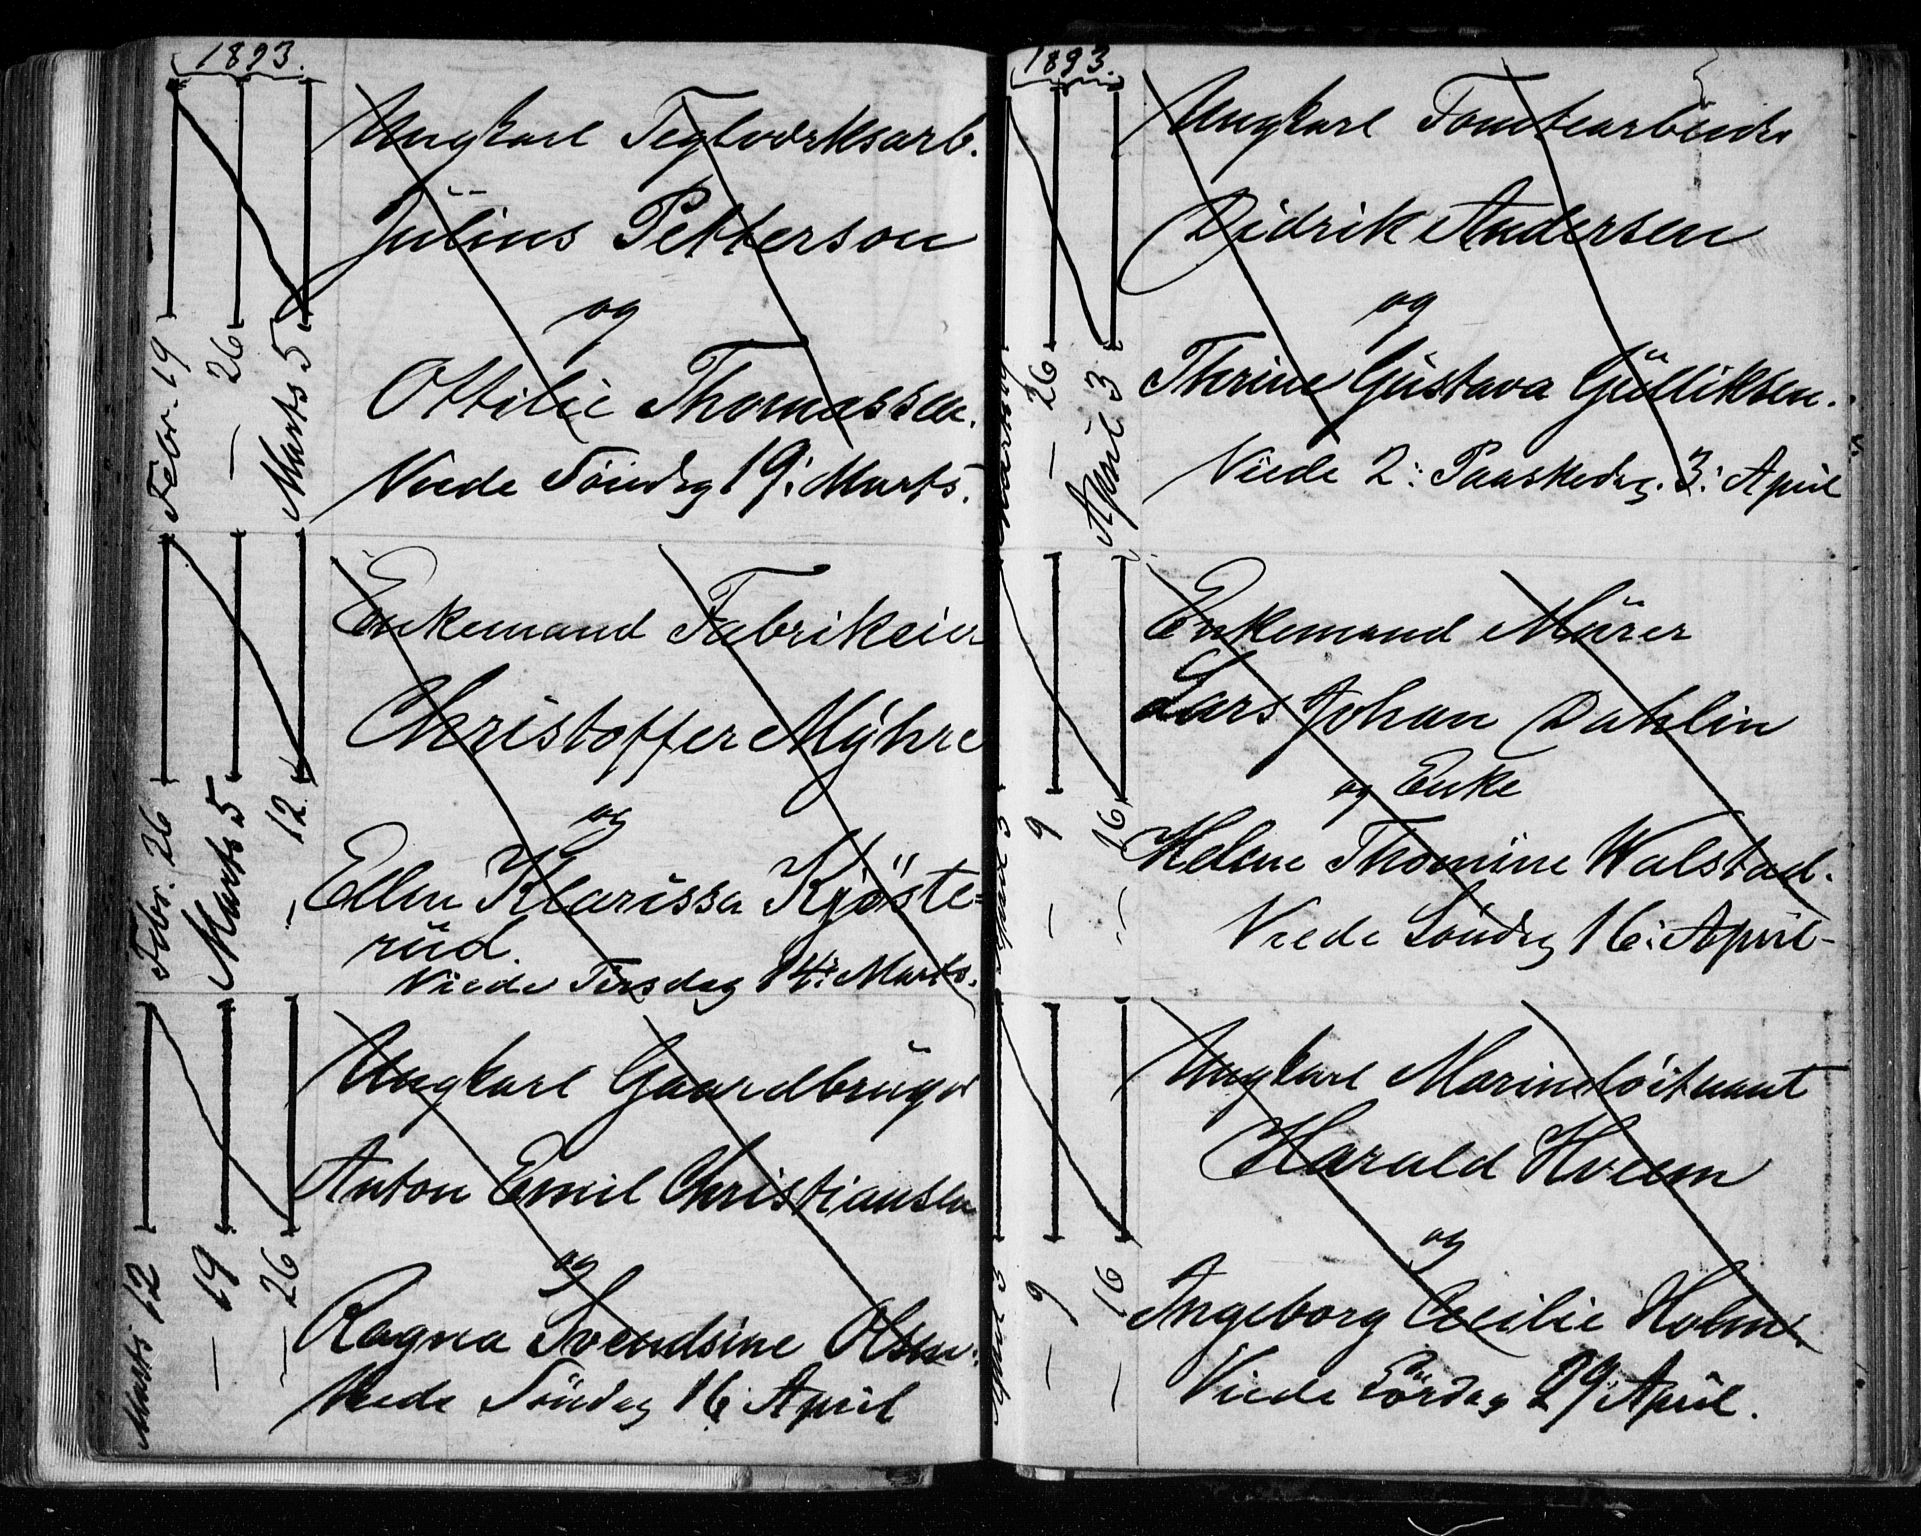 1893.
Febr. 19
— 26
Marts 5
Ungkarl Teglværksarb.
Julius Petterson
og
Ottilie Thomassen.
Viede Söndag 19: Marts.
Febr. 26
Marts 5
— 12
Enkemand Fabrikeier
Christoffer Myhre
og
Ellen Klarissa Kjöste=
rud.
Viede Tirsdag 14: Marts.
Marts 12
— 19
— 26
Ungkarl Gaardbruger
Anton Emil Christiansen
og
Ragna Svendsine Olsen.
Viede Söndag 16 April
1893.
Marts 19
— 26
April 3
Ungkarl Tomtearbeider
Didrik Andersen
og
Thrine Gustava Gulliksen.
Viede 2: Paaskedag. 3: April
April 3
— 9
— 16
Enkemand Murer
Lars Johan Dahlin
og Enke
Helene Thomine Walstad.
Viede Söndag 16: April
April 3
— 9
— 16
Ungkarl Marinelöitnant
Harald Hveem
og
Ingeborg Cecilie Holm.
Viede Lördag 29 April.